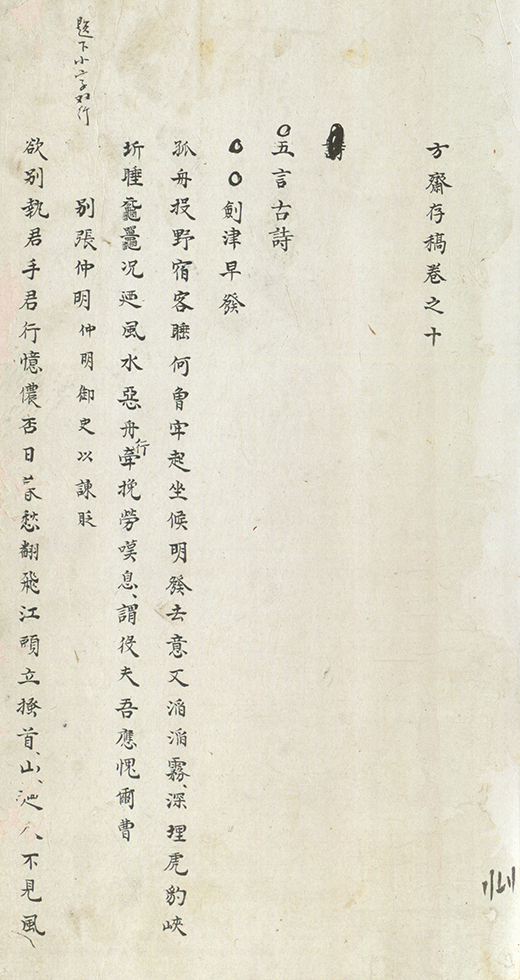 方齋存稿卷之十
詩
五言古詩
劍津早發
孤舟投野宿客睡何曾牢起坐候明發去意又滔滔霧深埋虎豹峽
圻睡黿鼉况迺風水惡舟行牽挽勞嘆息謂役夫吾應愧爾曹
別張仲明仲明御史以諫貶
欲別執君手君行憶儂否日暮愁翻飛江頭立搔首山人不見風
題下小字雙行